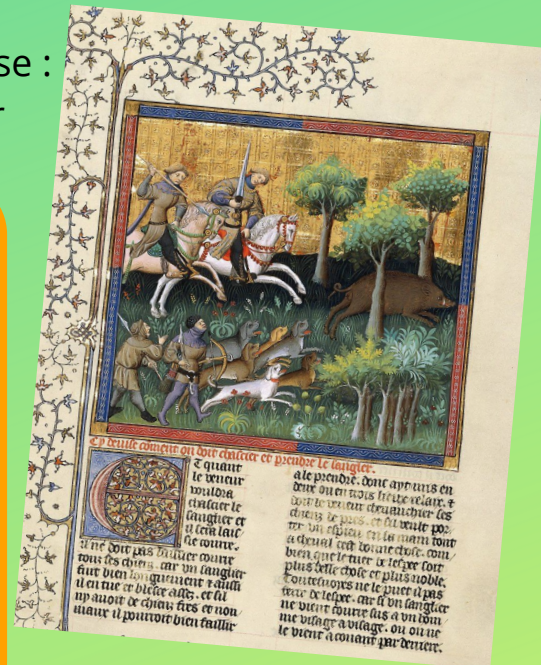 se :
r
Cy deuise coment on doit chascier et prendre le sanglier.
Et quant
le veneur
vouldra
chascier le
sanglier et
il lera laic
sie courre.
il ne doit pas laissier courre
tous ses chiens. car vn sanglier
fuit bien longuement et aussi
il en tue et blesce assez. et sil
ny auoit de chiens fres et nou
uiaux il pourroit bien faillir
a le prendre. donc ayt uns en
deux ou en trois lieux relaix. et
doit le veneur cheuauchier ses
chiens de pres. et sil veult por
ter vn espieu en la main tout
a cheual cest bonne chose. com
bien que le tuer de lespee soit
plus belle chose et plus noble.
Toutesuoyes ne le puet il pas
ferir de lespee. car se vn sanglier
ne vient courre sus a vn hom
me visage a visage. ou on ne
le vient aconsuiuant par derriere.